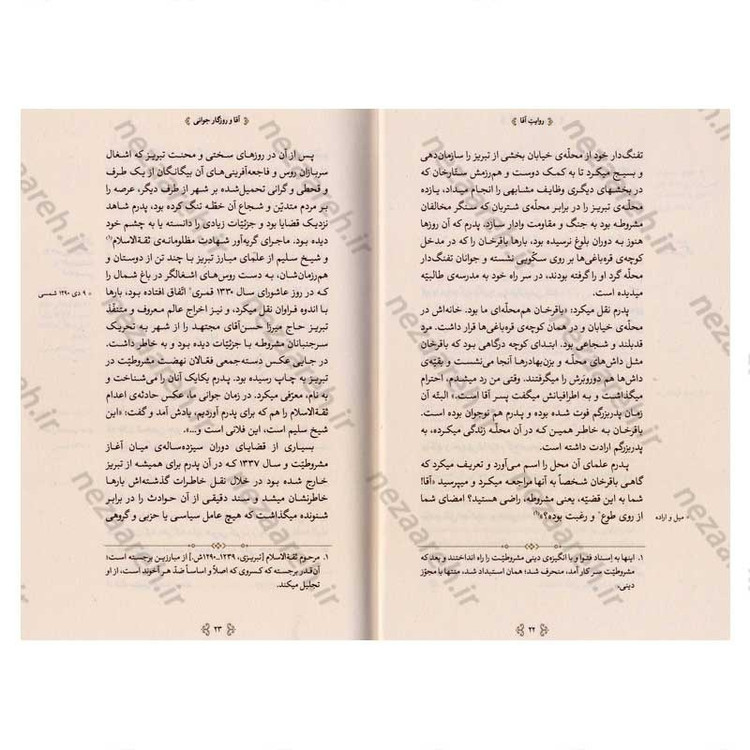 روایت آقا
تفنگ‌دار خود از محلّه‌ی خیابان بخشی از تبریز را سازمان‌دهی
و بسیج میکرد تا به کمک دوست و هم‌رزمش ستّارخان که
در بخشهای دیگری وظایف مشابهی را انجام میداد، یازده
محلّه‌ی تبریز را در برابر محلّه‌ی شتربان که سنگر مخالفان
مشروطه بود به جنگ و مقاومت وادار سازد. پدرم که آن روزها
هنوز به دوران بلوغ نرسیده بود، بارها باقرخان را که در مدخل
کوچه‌ی قره‌باغی‌ها بر روی سکّویی نشسته و جوانان تفنگ‌دار
محلّه گرد او را گرفته بودند، در سر راه خود به مدرسه‌ی طالبیّه
میدیده است.
پدرم نقل میکرد: «باقرخان هم‌محلّه‌ای ما بود. خانه‌اش در
محلّه‌ی خیابان و در همان کوچه‌ی قره‌باغی‌ها قرار داشت. مرد
قدبلند و شجاعی بود. ابتدای کوچه درگاهی بود که باقرخان
مثل داش‌های محلّه و بزن‌بهادرها آنجا می‌نشست و بقیّه‌ی
داش‌ها هم دوروبرش را میگرفتند. وقتی من رد میشدم، احترام
میگذاشت و به اطرافیانش میگفت پسر آقا است.» البتّه آن
زمان پدربزرگم فوت شده بوده و پدرم هم نوجوان بوده است.
باقرخان به خاطر همین که در آن محلّه زندگی میکرده، به
پدربزرگم ارادت داشته است.
پدرم علمای آن محل را اسم می‌آورد و تعریف میکرد که
گاهی باقرخان شخصاً به آنها مراجعه میکرد و میپرسید «آقا!
شما به این قضیّه، یعنی مشروطه، راضی هستید؟ امضای شما
از روی طوع* و رغبت بوده؟»(۱)
* میل و اراده
۱. اینها به اِسناد فتوا و با انگیزه‌ی دینی مشروطیّت را راه انداختند و بعد که
مشروطیّت سر کار آمد، منحرف شد؛ همان استبداد شد، منتها با مجوّز
دینی.
۲۲
آقا و روزگار جوانی
پس از آن در روزهای سختی و محنت تبریز که اشغال
سربازان روس و فاجعه‌آفرینی‌های آن بیگانگان از یک طرف
و قحطی و گرانی تحمیل‌شده بر شهر از طرف دیگر، عرصه را
بر مردم متدیّن و شجاع آن خطّه تنگ کرده بود، پدرم شاهد
نزدیک قضایا بود و جزئیّات زیادی را دانسته یا به چشم خود
دیده بود. ماجرای گریه‌آور شهادت مظلومانه‌ی ثقةالاسلام(۱)
و شیخ سلیم از علمای مبارز تبریز با چند تن از دوستان و
هم‌رزمان‌شان، به دست روس‌های اشغالگر در باغ شمال را
که در روز عاشورای سال ۱۳۳۰ قمری* اتّفاق افتاده بود، بارها
با اندوه فراوان نقل میکرد، و نیز اخراج عالم معروف و متنفّذ
تبریز حاج میرزا حسن‌آقای مجتهد را از شهر به تحریک
سرجنبانان مشروطه با جزئیّات دیده بود و به خاطر داشت.
در جایی عکس دسته‌جمعی فعّالان نهضت مشروطیّت در
تبریز به چاپ رسیده بود. پدرم یکایک آنان را می‌شناخت و
به نام، معرّفی میکرد. در زمان جوانی ما، عکس حادثه‌ی اعدام
ثقةالاسلام را هم که برای پدرم آوردیم، یادش آمد و گفت: «این
شیخ سلیم است، این فلانی است و...».
بسیاری از قضایای دوران سیزده‌ساله‌ی میان آغاز
مشروطیّت و سال ۱۳۳۷ که در آن پدرم برای همیشه از تبریز
خارج شده بود در خلال نقل خاطرات گذشته‌اش بارها
خاطرنشان میشد و سند دقیقی از آن حوادث را در برابر
شنونده میگذاشت که هیچ عامل سیاسی یا حزبی و گروهی
* ۹ دی ۱۲۹۰ شمسی
۱. مرحوم ثقةالاسلام [تبریزی، ۱۲۳۹ـ۱۲۹۰ش.] از مبارزین برجسته است؛
آن‌قدر برجسته که کسروی که اصلاً و اساساً ضدّ هر آخوند است، از او
تجلیل میکند.
۲۳
nezaareh.ir